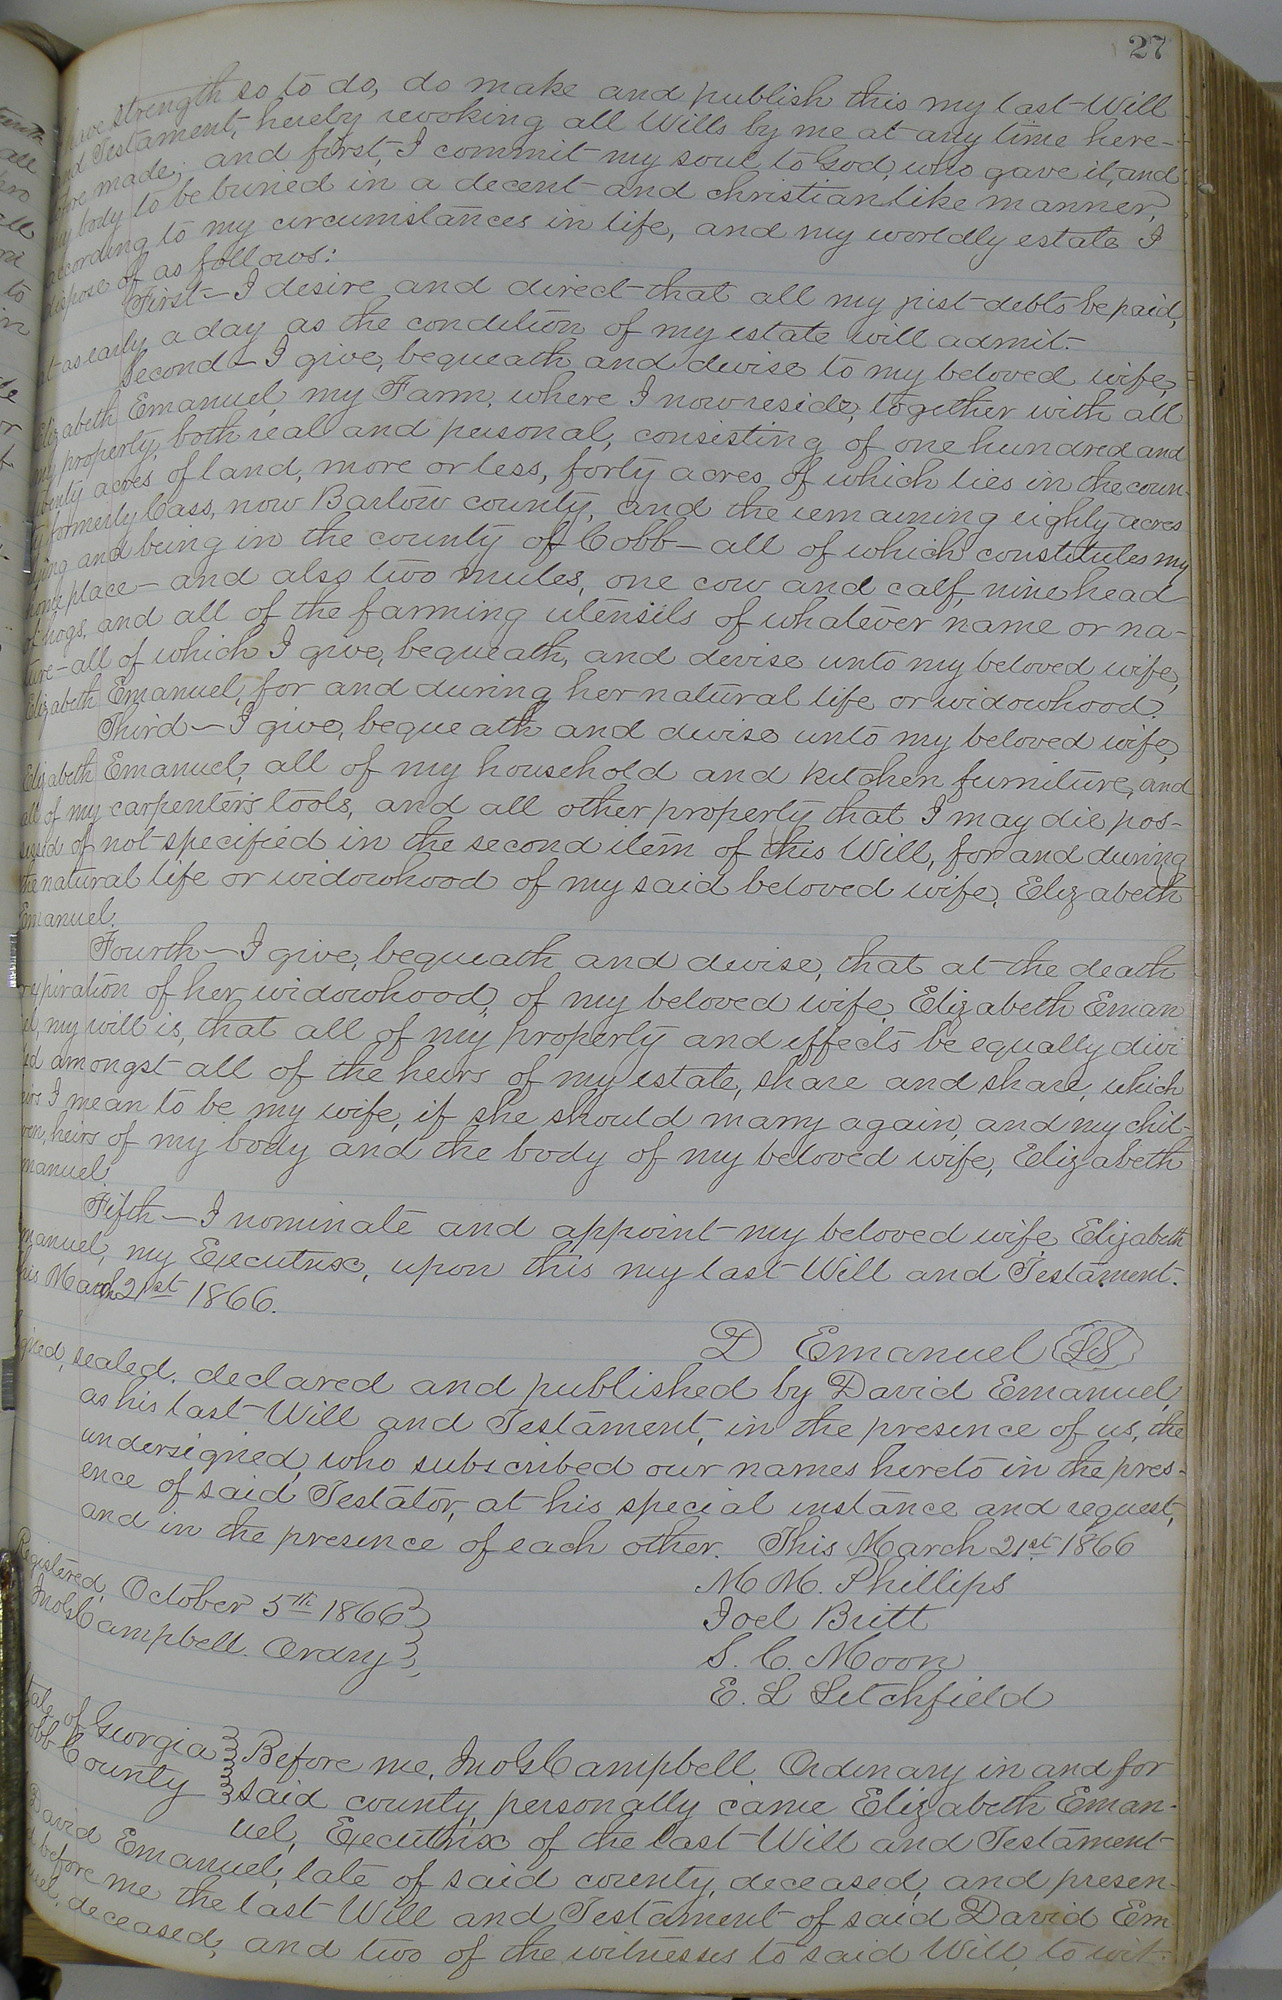 27
have strength so to do, do make and publish this my last Will
and Testament, hereby revoking all Wills by me at any time here-
fore made; and first, I commit my soul to God, who gave it, and
my body to be buried in a decent and christianlike manner,
according to my circumstances in life, and my worldly estate I
dispose of as follows:
First — I desire and direct that all my just debts be paid,
at as early a day as the condition of my estate will admit.
Second — I give, bequeath and devise to my beloved wife,
Elizabeth Emanuel, my Farm, where I now reside, together with all
my property, both real and personal, consisting of one hundred and
twenty acres of land, more or less, forty acres of which lies in the coun-
ty formerly Cass, now Bartow county, and the remaining eighty acres
lying and being in the county of Cobb — all of which constitutes my
home place — and also two mules, one cow and calf, nine head
of hogs, and all of the farming utensils of whatever name or na-
ture — all of which I give, bequeath, and devise unto my beloved wife,
Elizabeth Emanuel, for and during her natural life or widowhood.
Third — I give, bequeath and devise unto my beloved wife,
Elizabeth Emanuel, all of my household and kitchen furniture, and
all of my carpenter's tools, and all other property that I may die pos-
sessed of not specified in the second item of this Will, for and during
the natural life or widowhood of my said beloved wife, Elizabeth
Emanuel.
Fourth — I give, bequeath and devise, that at the death
or expiration of her widowhood, of my beloved wife, Elizabeth Eman
uel, my will is, that all of my property and effects be equally divi
ded amongst all of the heirs of my estate, share and share, which
heirs I mean to be my wife, if she should marry again, and my chil-
dren, heirs of my body and the body of my beloved wife, Elizabeth
Emanuel.
Fifth — I nominate and appoint my beloved wife Elizabeth
Emanuel, my Executrix, upon this my last Will and Testament.
this March 21st 1866.
D Emanuel LS
Signed, sealed, declared and published by David Emanuel,
as his last Will and Testament, in the presence of us, the
undersigned, who subscribed our names hereto in the pres-
ence of said Testator, at his special instance and request,
and in the presence of each other. This March 21st 1866
M. M. Phillips
Joel Britt
S. C. Moon
E. L Litchfield
Registered, October 5th 1866
Jno G Campbell. Ordny
State of Georgia
Cobb County
Before me, Jno G Campbell. Ordinary in and for
said county, personally came Elizabeth Eman-
uel, Executrix of the last Will and Testament
David Emanuel, late of said county, deceased, and presen-
before me the last Will and Testament of said David Em
uel, deceased, and two of the witnesses to said Will, to wit: